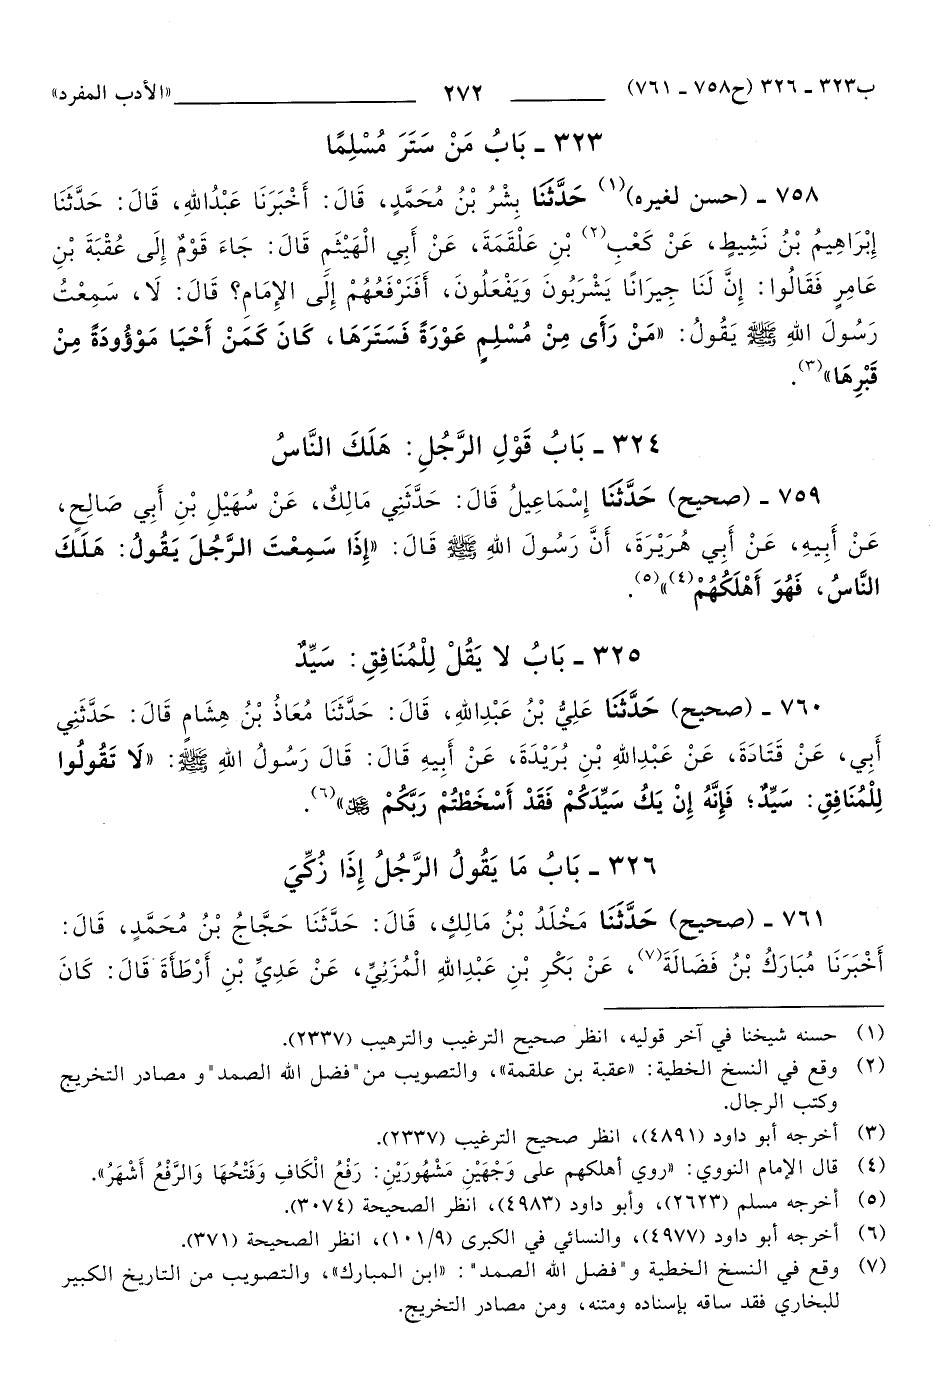 ب٣٢٣ ـ ٣٢٦ (ح٧٥٨ ـ ٧٦١) ٢٧٢ «الأدب المفرد»
٣٢٣ ـ بَابُ مَنْ سَتَرَ مُسْلِمًا
٧٥٨ ـ (حسن لغيره)(١) حَدَّثَنَا بِشْرُ بْنُ مُحَمَّدٍ، قَالَ: أَخْبَرَنَا عَبْدُاللهِ، قَالَ: حَدَّثَنَا
إِبْرَاهِيمُ بْنُ نَشِيطٍ، عَنْ كَعْبِ(٢) بْنِ عَلْقَمَةَ، عَنْ أَبِي الْهَيْثَمِ قَالَ: جَاءَ قَوْمٌ إِلَى عُقْبَةَ بْنِ
عَامِرٍ فَقَالُوا: إِنَّ لَنَا جِيرَانًا يَشْرَبُونَ وَيَفْعَلُونَ، أَفَنَرْفَعُهُمْ إِلَى الإِمَامِ؟ قَالَ: لَا، سَمِعْتُ
رَسُولَ اللهِ ﷺ يَقُولُ: «مَنْ رَأَى مِنْ مُسْلِمٍ عَوْرَةً فَسَتَرَهَا، كَانَ كَمَنْ أَحْيَا مَوْؤُودَةً مِنْ
قَبْرِهَا»(٣).
٣٢٤ ـ بَابُ قَوْلِ الرَّجُلِ: هَلَكَ النَّاسُ
٧٥٩ ـ (صحيح) حَدَّثَنَا إِسْمَاعِيلُ قَالَ: حَدَّثَنِي مَالِكٌ، عَنْ سُهَيْلِ بْنِ أَبِي صَالِحٍ،
عَنْ أَبِيهِ، عَنْ أَبِي هُرَيْرَةَ، أَنَّ رَسُولَ اللهِ ﷺ قَالَ: «إِذَا سَمِعْتَ الرَّجُلَ يَقُولُ: هَلَكَ
النَّاسُ، فَهُوَ أَهْلَكُهُمْ(٤)»(٥).
٣٢٥ ـ بَابُ لا يَقُلْ لِلْمُنَافِقِ: سَيِّدٌ
٧٦٠ ـ (صحيح) حَدَّثَنَا عَلِيُّ بْنُ عَبْدِاللهِ، قَالَ: حَدَّثَنَا مُعَاذُ بْنُ هِشَامٍ قَالَ: حَدَّثَنِي
أَبِي، عَنْ قَتَادَةَ، عَنْ عَبْدِاللهِ بْنِ بُرَيْدَةَ، عَنْ أَبِيهِ قَالَ: قَالَ رَسُولُ اللهِ ﷺ: «لَا تَقُولُوا
لِلْمُنَافِقِ: سَيِّدٌ؛ فَإِنَّهُ إِنْ يَكُ سَيِّدَكُمْ فَقَدْ أَسْخَطْتُمْ رَبَّكُمْ ﷻ»(٦).
٣٢٦ ـ بَابُ مَا يَقُولُ الرَّجُلُ إِذَا زُكِّيَ
٧٦١ ـ (صحيح) حَدَّثَنَا مَخْلَدُ بْنُ مَالِكٍ، قَالَ: حَدَّثَنَا حَجَّاجُ بْنُ مُحَمَّدٍ، قَالَ:
أَخْبَرَنَا مُبَارَكُ بْنُ فَضَالَةَ(٧)، عَنْ بَكْرِ بْنِ عَبْدِاللهِ الْمُزَنِيِّ، عَنْ عَدِيِّ بْنِ أَرْطَأَةَ قَالَ: كَانَ
(١) حسنه شيخنا في آخر قوليه، انظر صحيح الترغيب والترهيب (٢٣٣٧).
(٢) وقع في النسخ الخطية: «عقبة بن علقمة»، والتصويب من"فضل الله الصمد"و مصادر التخريج
وكتب الرجال.
(٣) أخرجه أبو داود (٤٨٩١)، انظر صحيح الترغيب (٢٣٣٧).
(٤) قال الإمام النووي: «روي أهلكهم على وَجْهَيْنِ مَشْهُورَيْنِ: رَفْعُ الْكَافِ وَفَتْحُهَا وَالرَّفْعُ أَشْهَرُ».
(٥) أخرجه مسلم (٢٦٢٣)، وأبو داود (٤٩٨٣)، انظر الصحيحة (٣٠٧٤).
(٦) أخرجه أبو داود (٤٩٧٧)، والنسائي في الكبرى (١٠١/٩)، انظر الصحيحة (٣٧١).
(٧) وقع في النسخ الخطية و"فضل الله الصمد" : «ابن المبارك»، والتصويب من التاريخ الكبير
للبخاري فقد ساقه بإسناده ومتنه، ومن مصادر التخريج.